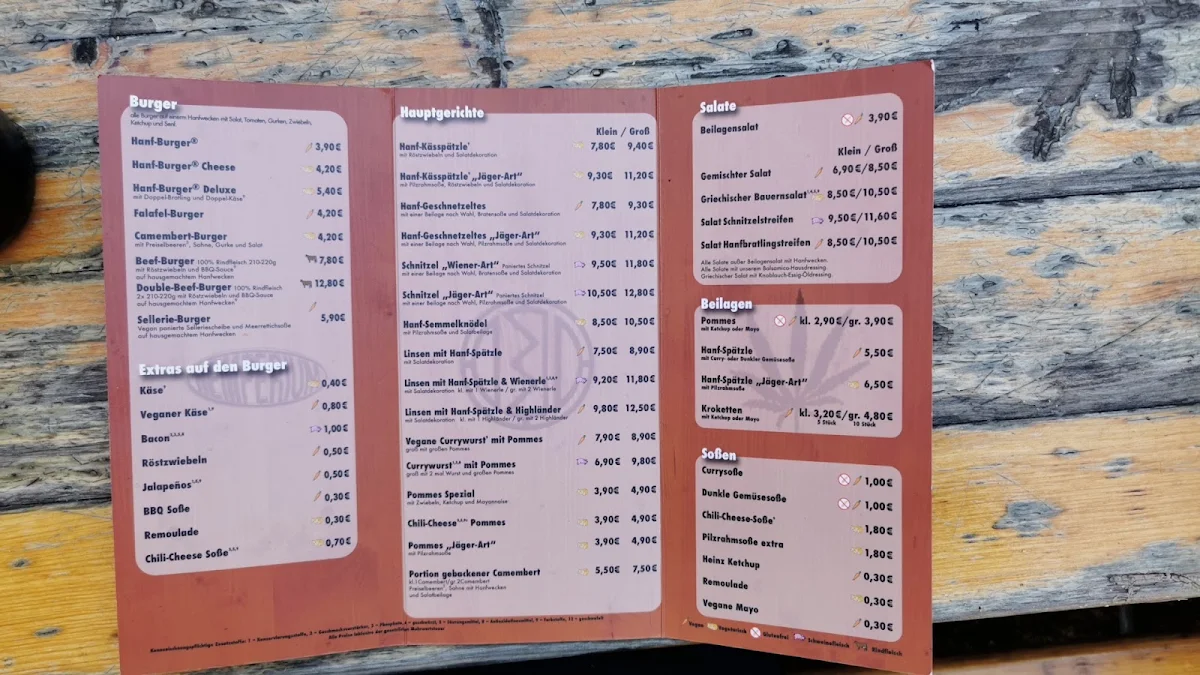 Burger
alle Burger auf unserem Hanfwecken mit Salat, Tomaten, Gurken, Zwiebeln,
Ketchup und Senf.
Hanf-Burger® 3,90€
Hanf-Burger® Cheese 4,20€
Hanf-Burger® Deluxe 5,40€
mit Doppel-Bratling und Doppel-Käse
Falafel-Burger 4,20€
Camembert-Burger 4,20€
mit Preiselbeeren, Sahne, Gurke und Salat
Beef-Burger 100% Rindfleisch 210-220g 7,80€
mit Röstzwiebeln und BBQ-Sauce
auf hausgemachtem Hanfwecken
Double-Beef-Burger 100% Rindfleisch 12,80€
2x 210-220g mit Röstzwiebeln und BBQ-Sauce
auf hausgemachtem Hanfwecken
Sellerie-Burger 5,90€
Vegan panierte Selleriescheibe und Meerrettichsoße
auf hausgemachtem Hanfwecken
Extras auf den Burger
Käse 0,40€
Veganer Käse 0,80€
Bacon 1,00€
Röstzwiebeln 0,50€
Jalapeños 0,50€
BBQ Soße 0,30€
Remoulade 0,30€
Chili-Cheese Soße 0,70€
Hauptgerichte
Klein / Groß
Hanf-Kässpätzle 7,80€ 9,40€
mit Röstzwiebeln und Salatdekoration
Hanf-Kässpätzle „Jäger-Art“ 9,30€ 11,20€
mit Pilzrahmsoße, Röstzwiebeln und Salatdekoration
Hanf-Geschnetzeltes 7,80€ 9,30€
mit einer Beilage nach Wahl, Bratensoße und Salatdekoration
Hanf-Geschnetzeltes „Jäger-Art“ 9,30€ 11,20€
mit einer Beilage nach Wahl, Pilzrahmsoße und Salatdekoration
Schnitzel „Wiener-Art“ Paniertes Schnitzel 9,50€ 11,80€
mit einer Beilage nach Wahl, Bratensoße und Salatdekoration
Schnitzel „Jäger-Art“ Paniertes Schnitzel 10,50€ 12,80€
mit einer Beilage nach Wahl, Pilzrahmsoße und Salatdekoration
Hanf-Semmelknödel 8,50€ 10,50€
mit Pilzrahmsoße und Salatbeilage
Linsen mit Hanf-Spätzle 7,50€ 8,90€
mit Salatdekoration
Linsen mit Hanf-Spätzle & Wienerle 9,20€ 11,80€
mit Salatdekoration kl. mit 1 Wienerle / gr. mit 2 Wienerle
Linsen mit Hanf-Spätzle & Highländer 9,80€ 12,50€
mit Salatdekoration kl. mit 1 Highländer / gr. mit 2 Highländer
Vegane Currywurst mit Pommes 7,90€ 8,90€
groß mit großen Pommes
Currywurst mit Pommes 6,90€ 9,80€
groß mit 2 mal Wurst und großen Pommes
Pommes Spezial 3,90€ 4,90€
mit Zwiebeln, Ketchup und Mayonnaise
Chili-Cheese Pommes 3,90€ 4,90€
Pommes „Jäger-Art“ 3,90€ 4,90€
mit Pilzrahmsoße
Portion gebackener Camembert 5,50€ 7,50€
kl.1Camembert/gr.2Camembert
Preiselbeeren, Sahne mit Hanfwecken
und Salatbeilage
Salate
Beilagensalat 3,90€
Klein / Groß
Gemischter Salat 6,90€/8,50€
Griechischer Bauernsalat 8,50€/10,50€
Salat Schnitzelstreifen 9,50€/11,60€
Salat Hanfbratlingstreifen 8,50€/10,50€
Alle Salate außer Beilagensalat mit Hanfwecken.
Alle Salate mit unserem Balsamico-Hausdressing.
Griechischer Salat mit Knoblauch-Essig-Öldressing.
Beilagen
Pommes kl. 2,90€/gr. 3,90€
mit Ketchup oder Mayo
Hanf-Spätzle 5,50€
mit Curry- oder Dunkler Gemüsesoße
Hanf-Spätzle „Jäger-Art“ 6,50€
mit Pilzrahmsoße
Kroketten kl. 3,20€/gr. 4,80€
mit Ketchup oder Mayo 5 Stück 10 Stück
Soßen
Currysoße 1,00€
Dunkle Gemüsesoße 1,00€
Chili-Cheese-Soße 1,80€
Pilzrahmsoße extra 1,80€
Heinz Ketchup 0,30€
Remoulade 0,30€
Vegane Mayo 0,30€
Vegan Vegetarisch Glutenfrei Schweinefleisch Rindfleisch
Alle Preise inklusive der gesetzlichen Mehrwertsteuer